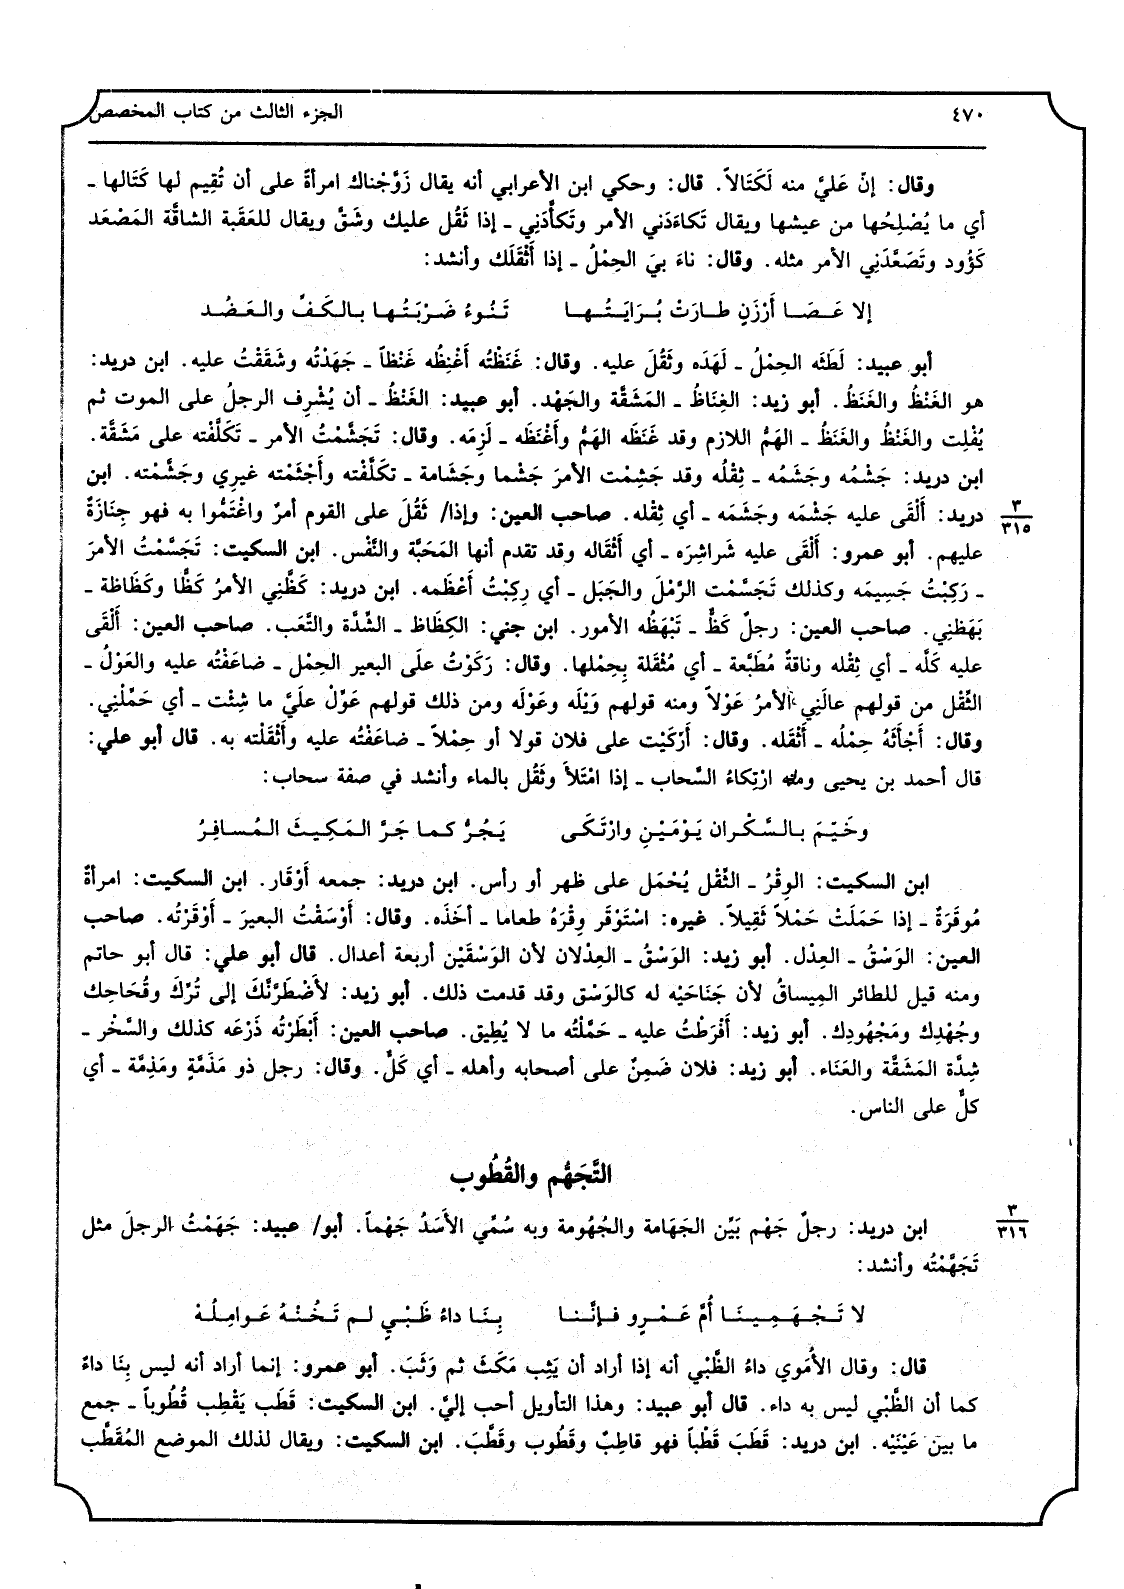 ٤٧٠
الجزء الثالث من كتاب المخصص
وقال: إنّ عَليَّ منه لَكَتَالاً. قال: وحكي ابن الأعرابي أنه يقال زَوَّجْناك امرأةً على أن تُقِيم لها كَتَالها ـ
أي ما يُصْلِحُها من عيشها ويقال تَكاءَدَني الأمر وتَكأَّدَنِي ـ إذا ثَقُل عليك وشَقَّ ويقال للعَقَبة الشاقَّة المَصْعَد
كَؤُود وتَصَعَّدَنِي الأمر مثله. وقال: ناءَ بيَ الحِمْلُ ـ إذا أَثْقَلَك وأنشد:
إلا عَـصَـا أَرْزَنٍ طـارَتْ بُـرَايَـتُـهـا تَـنُـوءُ ضَـرْبَـتُـهـا بـالـكَـفِّ والـعَـضُـد
أبو عبيد: لَطَثَه الحِمْلُ ـ لَهَدَه وثَقُلَ عليه. وقال: غَنَظْتُه أَغْنِظُه غَنْظاً ـ جَهَدْتُه وشَقَقْتُ عليه. ابن دريد:
هو الغَنْظُ والغَنَظُ. أبو زيد: الغِنَاظُ ـ المَشَقَّة والجَهْد. أبو عبيد: الغَنْظُ ـ أن يُشْرِف الرجلُ على الموت ثم
يُفْلِت والغَنْظُ والغَنَظُ ـ الهَمُّ اللازم وقد غَنَظَه الهَمُّ وأَغْنَظَه ـ لَزِمَه. وقال: تَجَشَّمْتُ الأمر ـ تَكَلَّفْته على مَشَقَّة.
ابن دريد: جَشْمُه وجَشَمُه ـ ثِقْلُه وقد جَشِمْت الأمرَ جَشْما وجَشَامة ـ تكَلَّفْته وأَجْثَمْته غيري وجَشَّمْته. ابن
دريد: أَلْقَى عليه جَشْمَه وجَشَمَه ـ أي ثِقْله. صاحب العين: وإذا/ ثَقُلَ على القوم أمرٌ واغْتَمُّوا به فهو جِنَازَةٌ
٣
٣١٥
عليهم. أبو عمرو: أَلْقَى عليه شَراشِرَه ـ أي أَثْقاله وقد تقدم أنها المَحَبَّة والنَّفْس. ابن السكيت: تَجَسَّمْتُ الأمرَ
ـ رَكِبْتُ جَسِيمَه وكذلك تَجَسَّمْت الرَّمْلَ والجَبَل ـ أي رِكِبْتُ أَعْظَمه. ابن دريد: كَظَّنِي الأمرُ كَظًّا وكَظَاظة ـ
بَهَظَنِي. صاحب العين: رجلٌ كَظٌّ ـ تَبْهَظُه الأمور. ابن جني: الكِظَاظ ـ الشِّدَّة والتَّعَب. صاحب العين: أَلْقَى
عليه كَلَّه ـ أي ثِقْله وناقةٌ مُطَبَّعة ـ أي مُثْقَلة بِحِملها. وقال: رَكَوْتُ علَى البعير الحِمْل ـ ضاعَفْته عليه والعَوْلُ ـ
الثِّقْل من قولهم عالَنِي الأمرُ عَوْلاً ومنه قولهم وَيْلَه وعَوْلَه ومن ذلك قولهم عَوِّلْ علَيَّ ما شِئْت ـ أي حَمِّلْنِي.
وقال: أَجْأَثَهُ حِمْلُه ـ أَثْقَله. وقال: أَرْكَيْت على فلان قولا أو حِمْلاً ـ ضاعَفْتُه عليه وأَثْقَلْته به. قال أبو علي:
قال أحمد بن يحيى ومنه ارْتِكاءُ السَّحاب ـ إذا امْتَلأَ وثَقُل بالماء وأنشد في صفة سحاب:
وخَـيَّـمَ بـالـسَّـكْـران يَـوْمَـيْـنِ وارْتَـكَـى يَـجُـرُّ كـمـا جَـرَّ الـمَـكِـيـثَ الـمُـسـافِـرُ
ابن السكيت: الوِقْرُ ـ الثِّقْل يُحْمَل على ظهر أو رأس. ابن دريد: جمعه أَوْقَار. ابن السكيت: امرأةٌ
مُوقَرَةٌ ـ إذا حَمَلَتْ حَمْلاً ثَقِيلاً. غيره: اسْتَوْقَر وِقْرَهُ طعاما ـ أخَذَه. وقال: أَوْسَقْتُ البعيرَ ـ أَوْقَرْتُه. صاحب
العين: الوَسْقُ ـ العِدْل. أبو زيد: الوَسْقُ ـ العِدْلان لأن الوَسْقَيْن أربعة أعدال. قال أبو علي: قال أبو حاتم
ومنه قيل للطائر المِيساقُ لأن جَنَاحَيْه له كالوَسْق وقد قدمت ذلك. أبو زيد: لأَضْطَرَّنَّكَ إلى تُرِّكَ وقُحَاحِك
وجُهْدِك ومَجْهُودِك. أبو زيد: أَفْرَطْتُ عليه ـ حَمَّلْتُه ما لا يُطِيق. صاحب العين: أَبْطَرْتُه ذَرْعَه كذلك والسَّخْر ـ
شِدَّة المَشَقَّة والعَنَاء. أبو زيد: فلان ضَمِنٌ على أصحابه وأهله ـ أي كَلٌّ. وقال: رجل ذو مَذَمَّةٍ ومَذِمَّة ـ أي
كلٌّ على الناس.
التَّجَهُّم والقُطُوب
ابن دريد: رجلٌ جَهْم بَيِّن الجَهَامة والجُهُومة وبه سُمِّي الأَسَدُ جَهْماً. أبو/ عبيد: جَهَمْتُ الرجلَ مثل
٣
٣١٦
تَجَهَّمْتُه وأنشد:
لا تَـجْـهَـمِـيـنَـا أُمَّ عَـمْـرٍو فـإنَّـنـا بِـنَـا داءُ ظَـبْـيٍ لـم تَـخُـنْـهُ عَـوامِـلُـهْ
قال: وقال الأُمَوي داءُ الظَّبْي أنه إذا أراد أن يَثِب مَكَثَ ثم وَثَبَ. أبو عمرو: إنما أراد أنه ليس بِنَا داءٌ
كما أن الظَّبْي ليس به داء. قال أبو عبيد: وهذا التأويل أحب إليَّ. ابن السكيت: قَطَب يَقْطِب قُطُوباً ـ جمع
ما بين عَيْنَيْه. ابن دريد: قَطَبَ قَطْباً فهو قاطِبٌ وقَطُوب وقَطَّبَ. ابن السكيت: ويقال لذلك الموضع المُقَطَّب